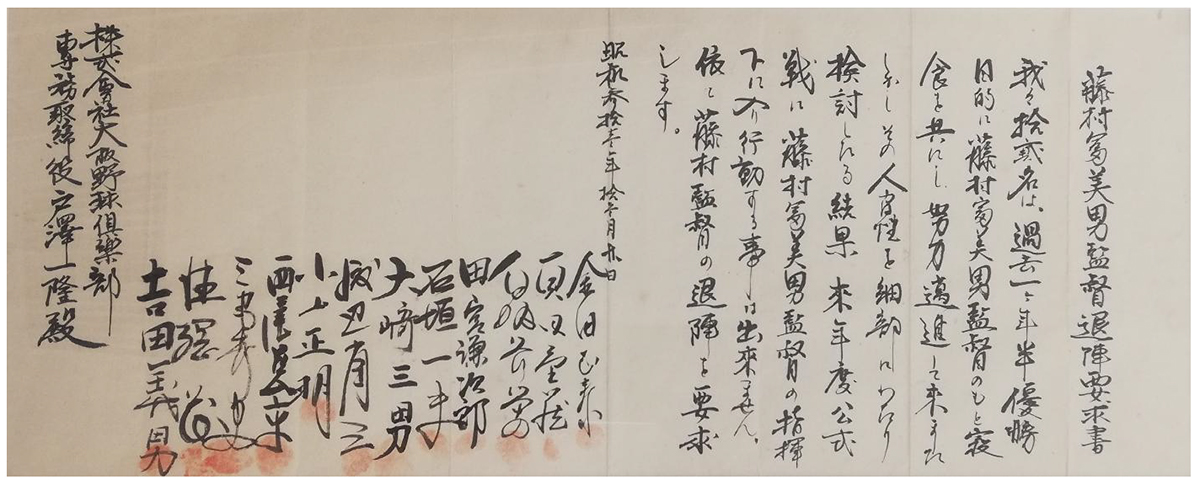 藤村冨美男監督退陣要求書
我々拾弐名は、過去一ヶ年半優勝
目的に藤村冨美男監督のもと寝
食を共にし努力邁進して来ました
しかしその人間性を細部にわたり
検討したる結果来年度公式
戦に藤村冨美男監督の指揮
下に入り行動する事は出来ません。
依って藤村監督の退陣を要求
します。
昭和参拾壱年拾一月 日
金田正泰
真田重蔵
白坂長栄
田宮謙次郎
石垣一夫
大崎三男
渡辺省三
小山正明
西尾慈高
三宅秀史
吉田義男
株式会社大阪野球倶楽部
専務取締役戸澤一隆殿